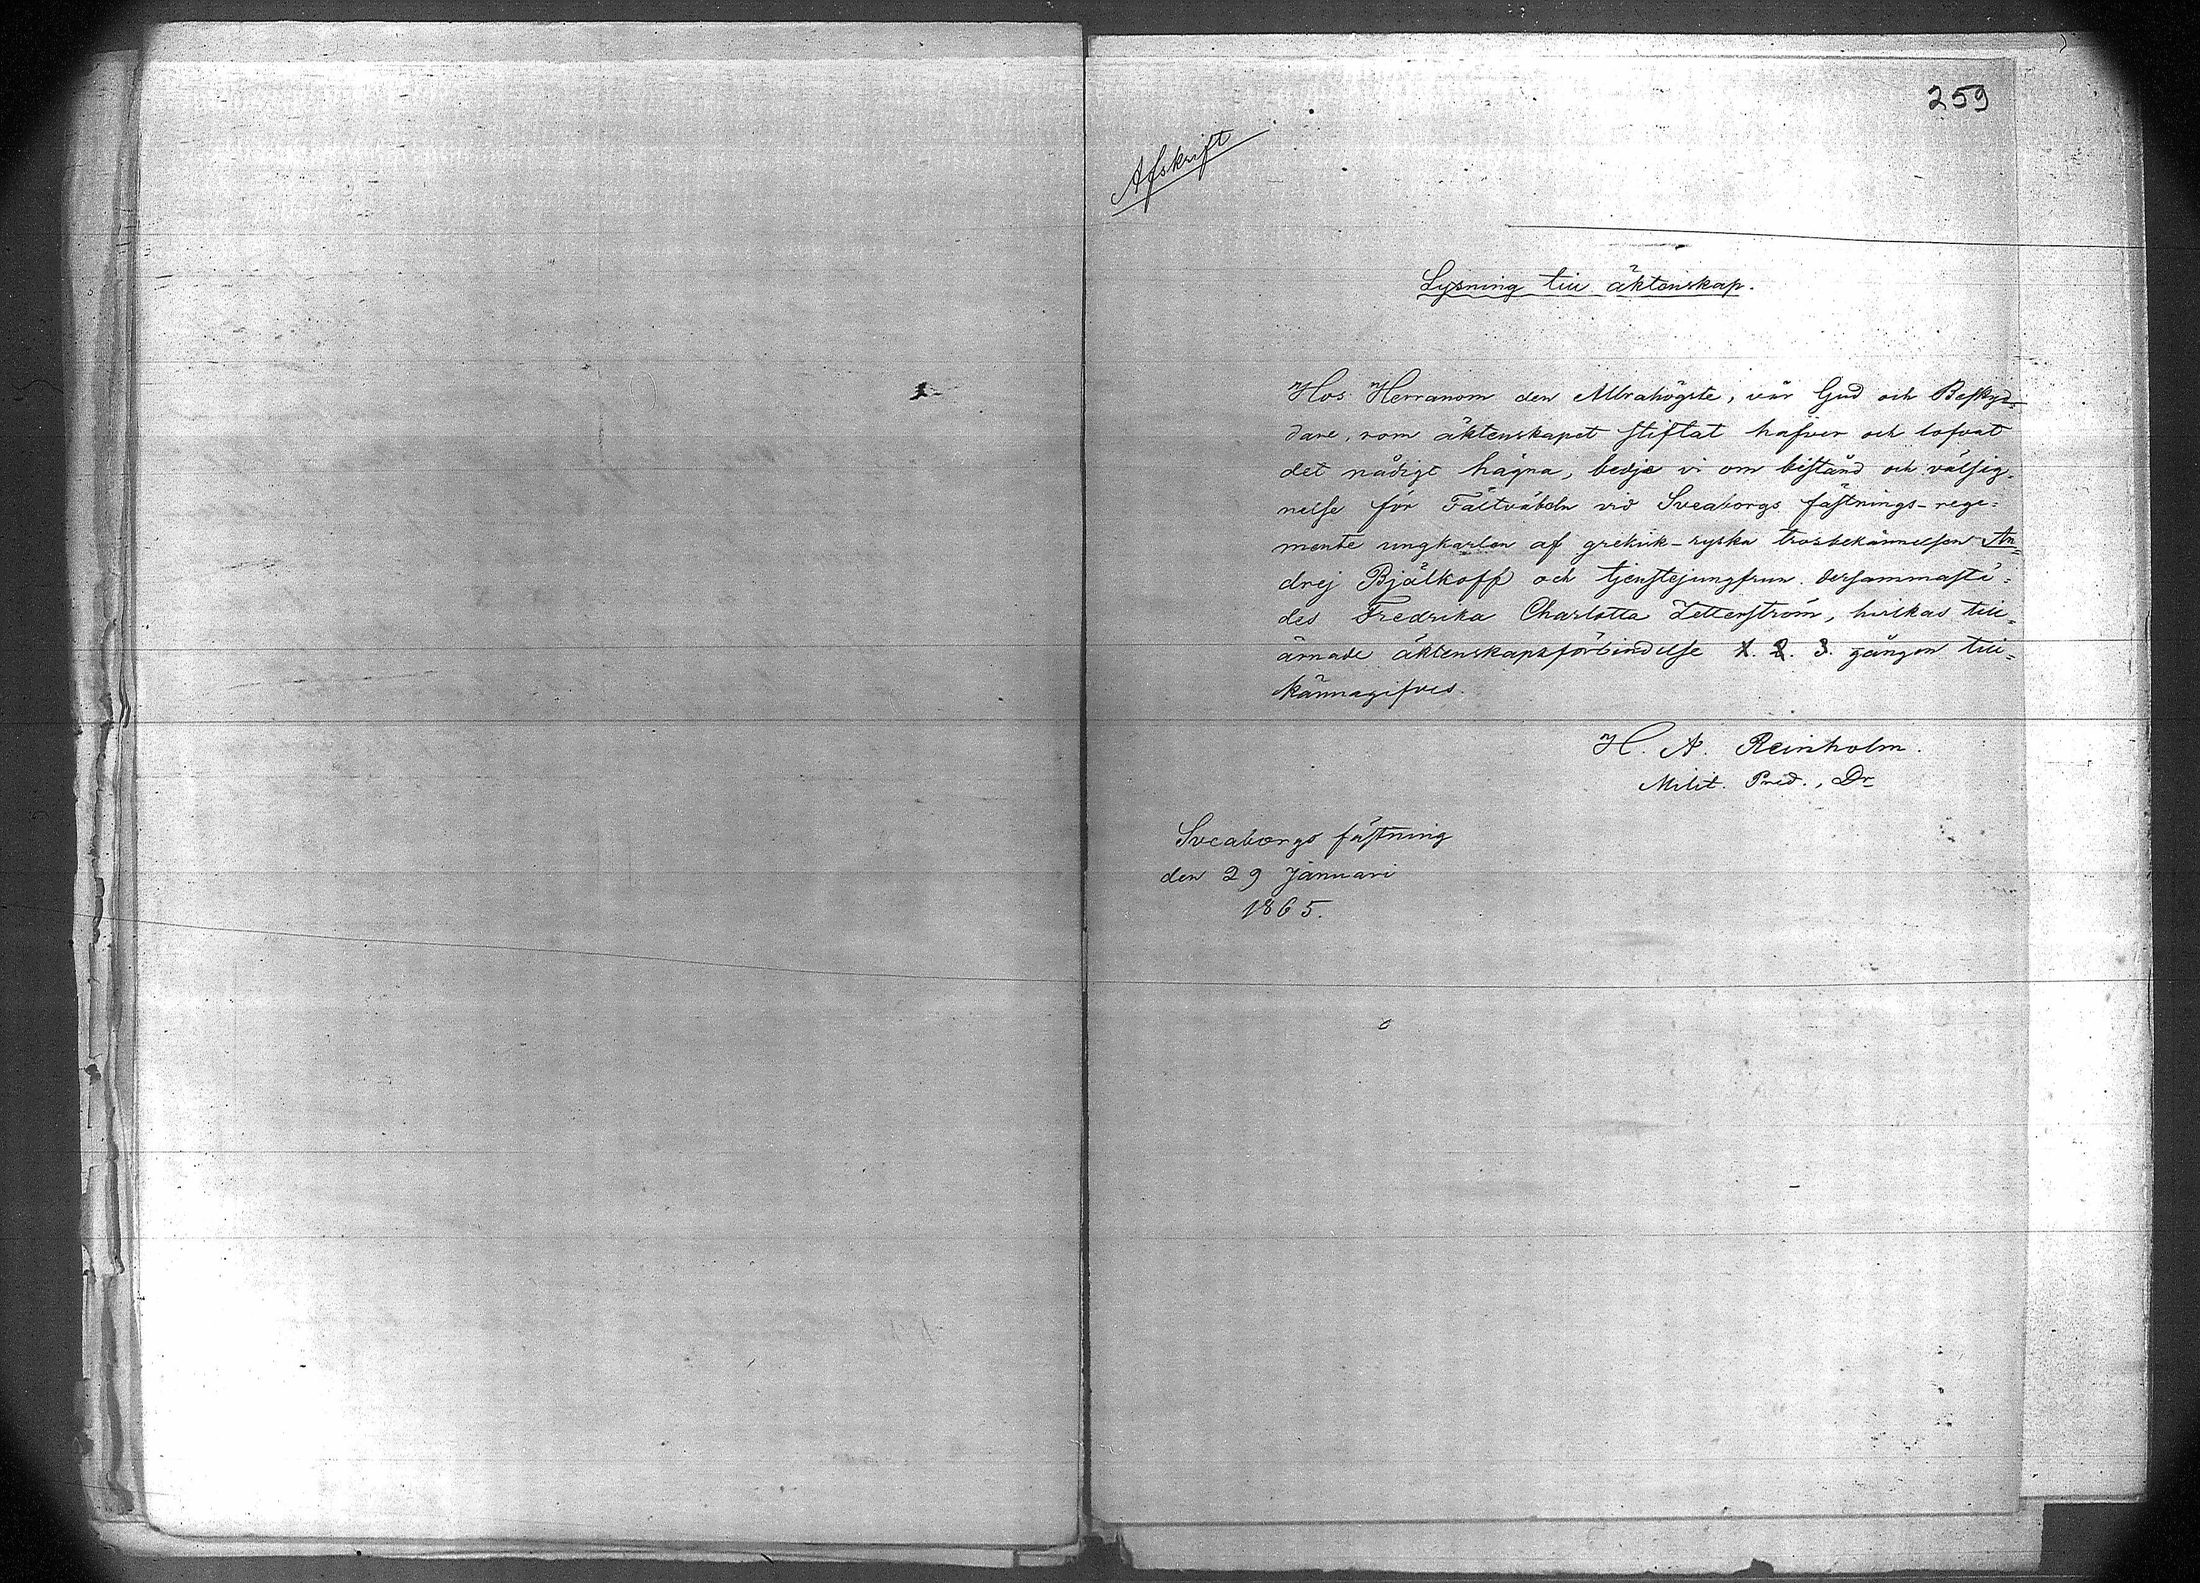 259
Afskrift
Lysning till äktenskap.
Hos Herranom den Allrahögste, vår Gud och Beskyd=
dare, som äktenskapet stiftat hafver och lofvat
det nådigt hägna, bedje vi om bistånd och välsig=
nelse för Fältväbeln vid Sveaborgs fästnings-rege=
mente ungkarlen af grekisk-ryska trosbekännelsen An=
drej Bjälkoff och tjenstejungfrun dersammastä=
des Fredrika Charlotta Zetterström, hvilkas till=
ärnade äktenskapsförbindelse 1. 2. 3. gången till=
kännagifves.
H. A. Reinholm.
Milit. Pred., Dr
Sveaborgs fästning
den 29 Januari
1865.